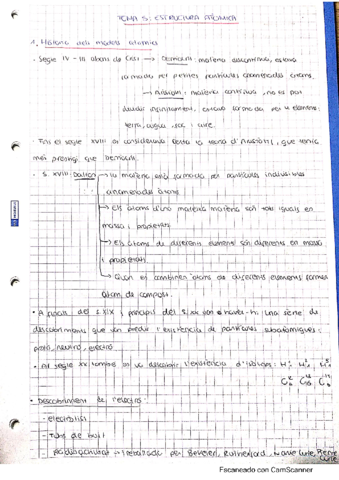 TEMA 5: ESTRUCTURA ATÒMICA
1. Història dels models atòmics
• Segle IV - III abans de Crist → Demòcrit: matèria discontínua, estava
formada per petites partícules anomenades àtoms.
→ Aristòtil: matèria contínua, no es pot
dividir infinitament, estava formada per 4 elements:
terra, aigua, foc i aire.
• Fins el segle XVIII es considerava certa la teoria d'Aristòtil, que tenia
més prestigi que Demòcrit.
• S. XVIII: Dalton → la matèria està formada per partícules indivisibles
anomenades àtoms
→ Els àtoms d'una mateixa matèria són tots iguals en
massa i propietats
→ Els àtoms de diferents elements són diferents en massa
i propietats
→ Quan es combinen àtoms de diferents elements formen
àtom de compost.
• A finals del s. XIX i principis del s. XX van haver-hi una sèrie de
descobriments que van predir l'existència de partícules subatòmiques:
protó, neutró, electró
• Al segle XX també es va descobrir l'existència d'isòtops: H H H
C C C
• Descobriment de l'electró:
- electròlisi
- Tubs de buit
- Radioactivitat → treballada per Becquerel, Rutherford, Marie Curie, Pierre
Curie
Escaneado con CamScanner